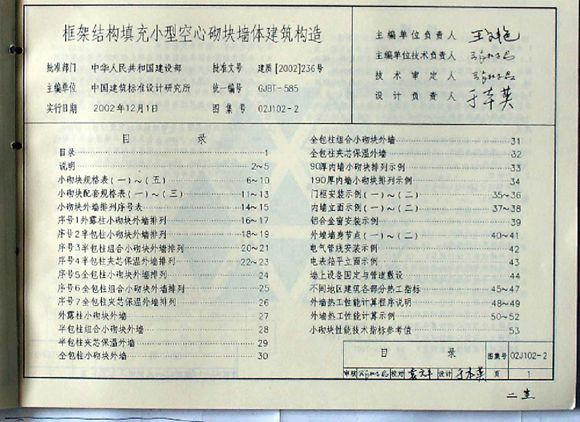 框架结构填充小型空心砌块墙体建筑构造
批准部门 中华人民共和国建设部 批准文号 建质[2002]236号
主编单位 中国建筑标准设计研究所 统一编号 GJBT-585
实行日期 2002年12月1日 图集号 02J102-2
主编单位负责人
主编单位技术负责人
技术审定人
设计负责人
目 录
目录 1
说明 2~5
小砌块规格表(一)~(五) 6~10
小砌块配套规格表(一)~(三) 11~13
小砌块外墙排列序号表 14~15
序号1外露柱小砌块外墙排列 16~17
序号2半包柱小砌块外墙排列 18~19
序号3半包柱组合小砌块外墙排列 20~21
序号4半包柱夹芯保温外墙排列 22~23
序号5全包柱小砌块外墙排列 24
序号6全包柱组合小砌块外墙排列 25
序号7全包柱夹芯保温外墙排列 26
外露柱小砌块外墙 27
半包柱组合小砌块外墙 28
半包柱夹芯保温外墙 29
全包柱小砌块外墙 30
全包柱组合小砌块外墙 31
全包柱夹芯保温外墙 32
90厚内墙小砌块排列示例 33
190厚内墙小砌块排列示例 34
门框安装示例(一)~(二) 35~36
内墙立面示例(一)~(二) 37~38
铝合金窗安装示例 39
外墙墙身节点(一)~(二) 40~41
电气管线安装示例 42
电表箱平立面示例 43
墙上设备固定与管道敷设 44
不同地区建筑各部分热工指标 45~47
外墙热工性能计算程序说明 48~49
外墙热工性能计算示例 50~52
小砌块性能技术指标参考值 53
目 录 图集号 02J102-2
审核 校对 设计 页 1